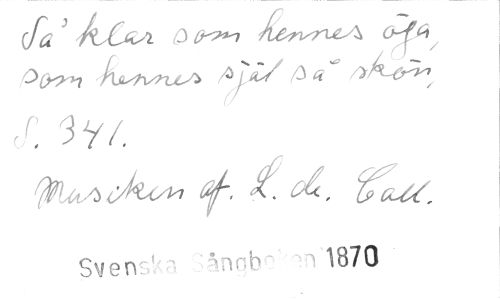 Så klar som hennes öga,
som hennes själ så skön,
S. 341.
Musiken af. L. de. Call.
Svenska Sångboken 1870